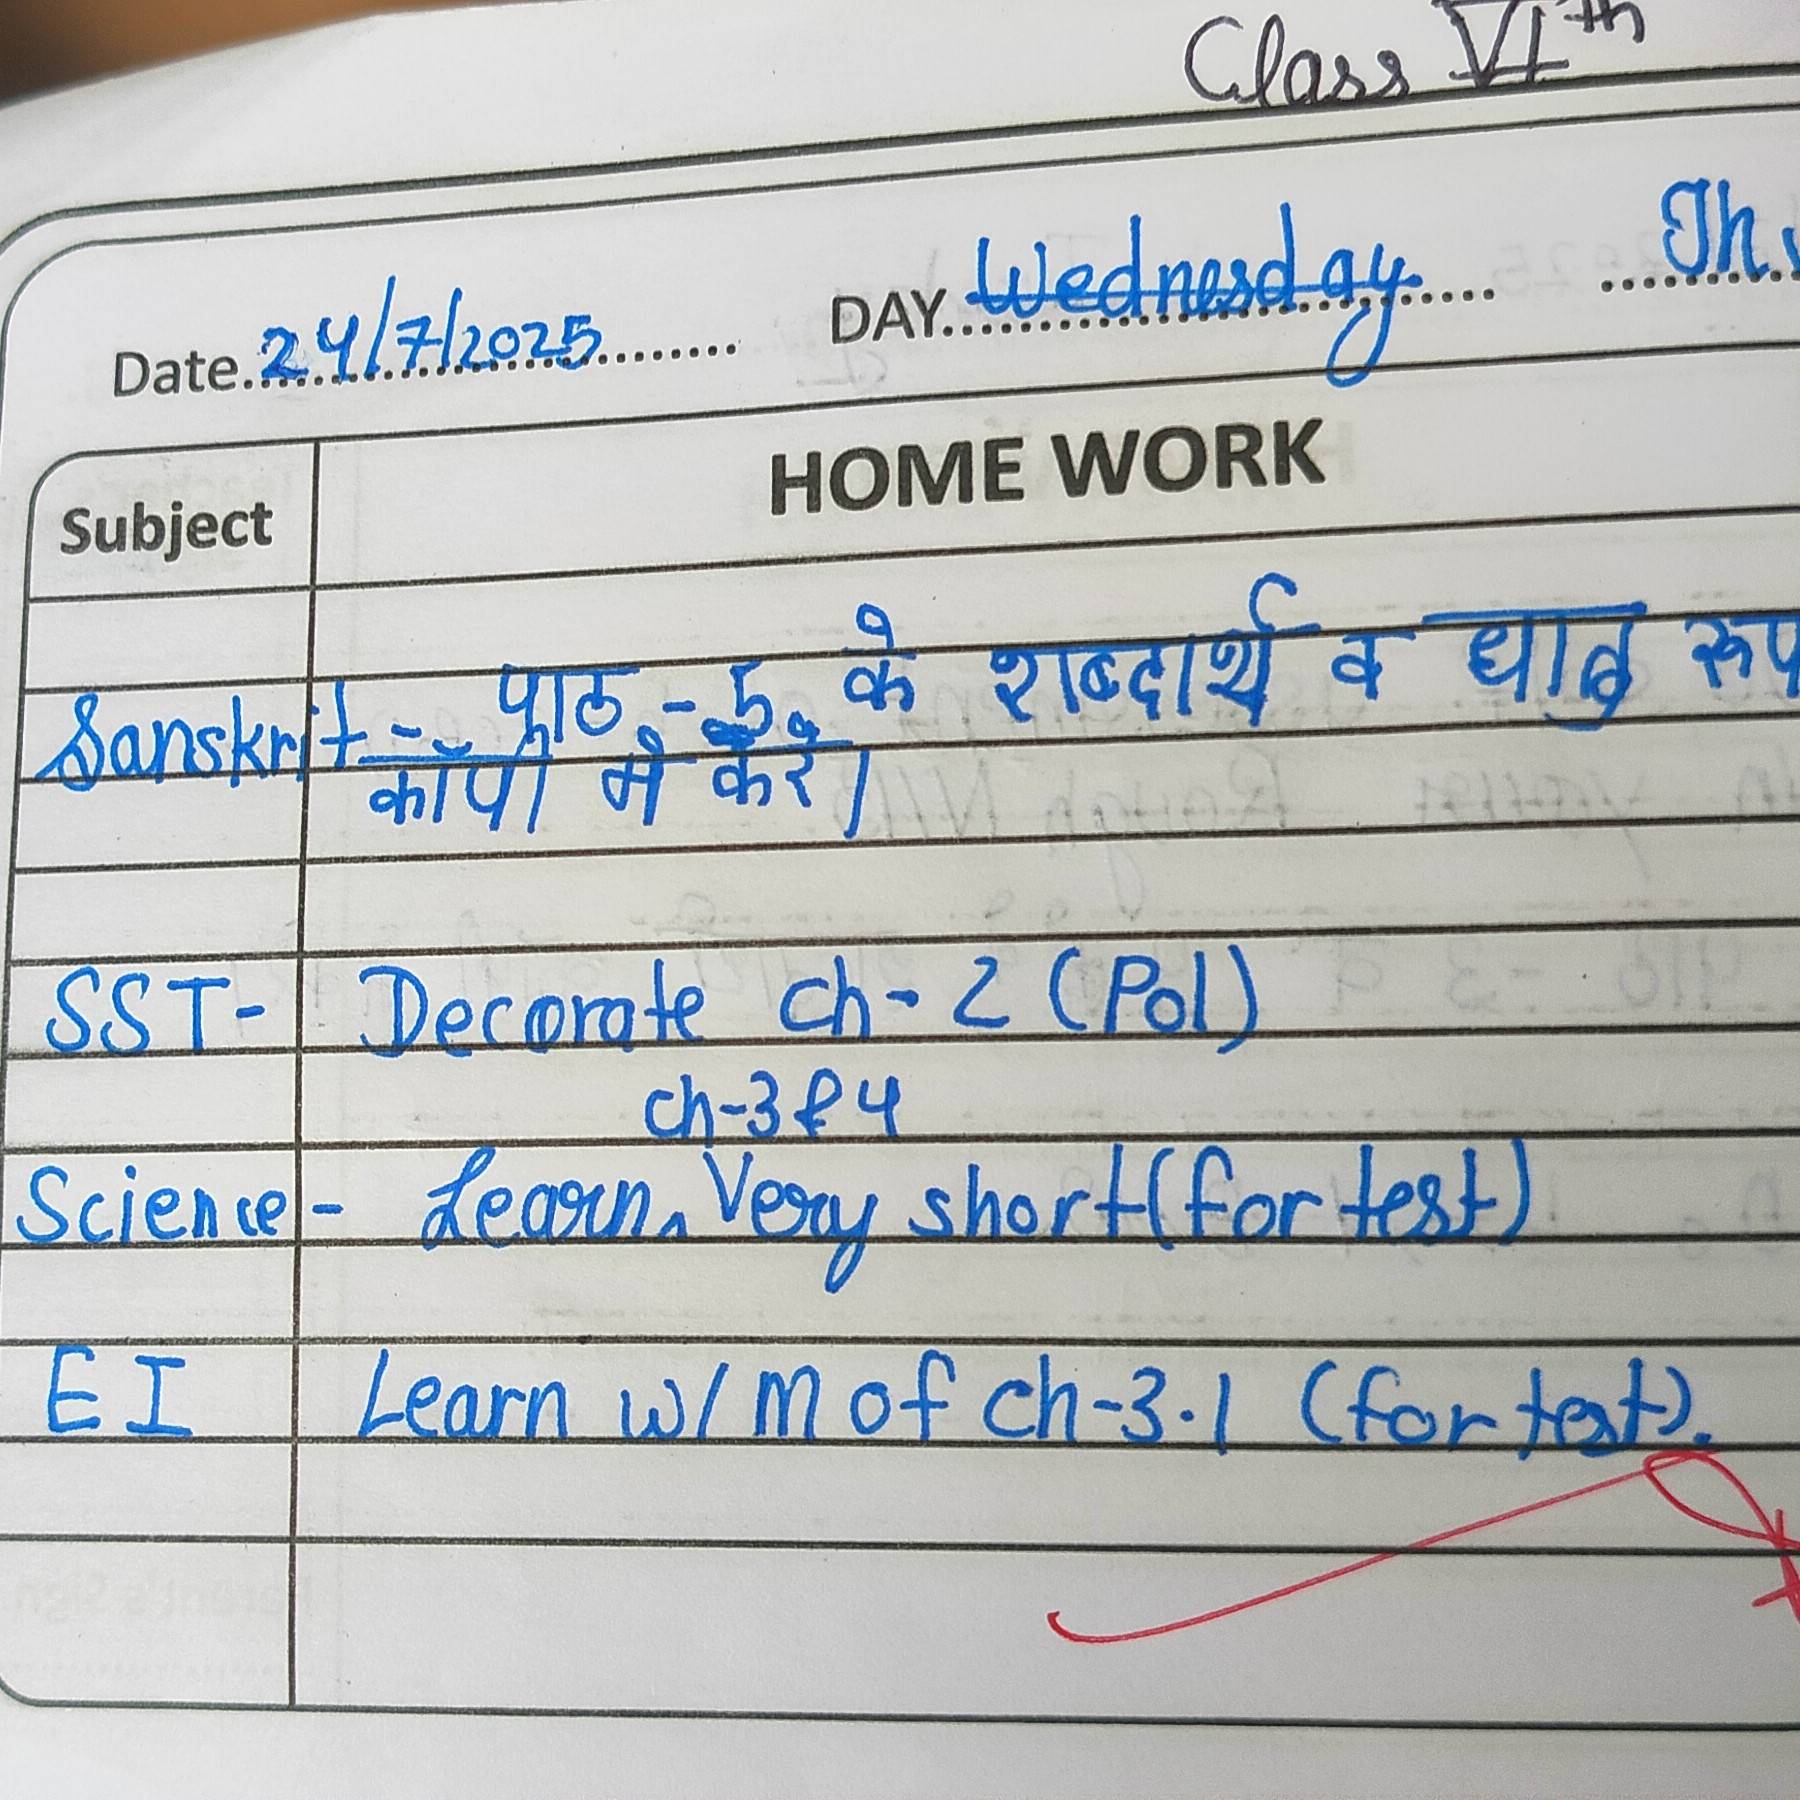 Class VIth
Date. 24/7/2025 DAY. Wednesday
Subject HOME WORK
Sanskrit - पाठ - 5 के शब्दार्थ व धातु रूप
कॉपी में करें।
SST- Decorate ch-2 (Pol)
ch-3 & 4
Science - Learn ^ Very short (for test)
EI Learn w/m of ch-3.1 (for test).